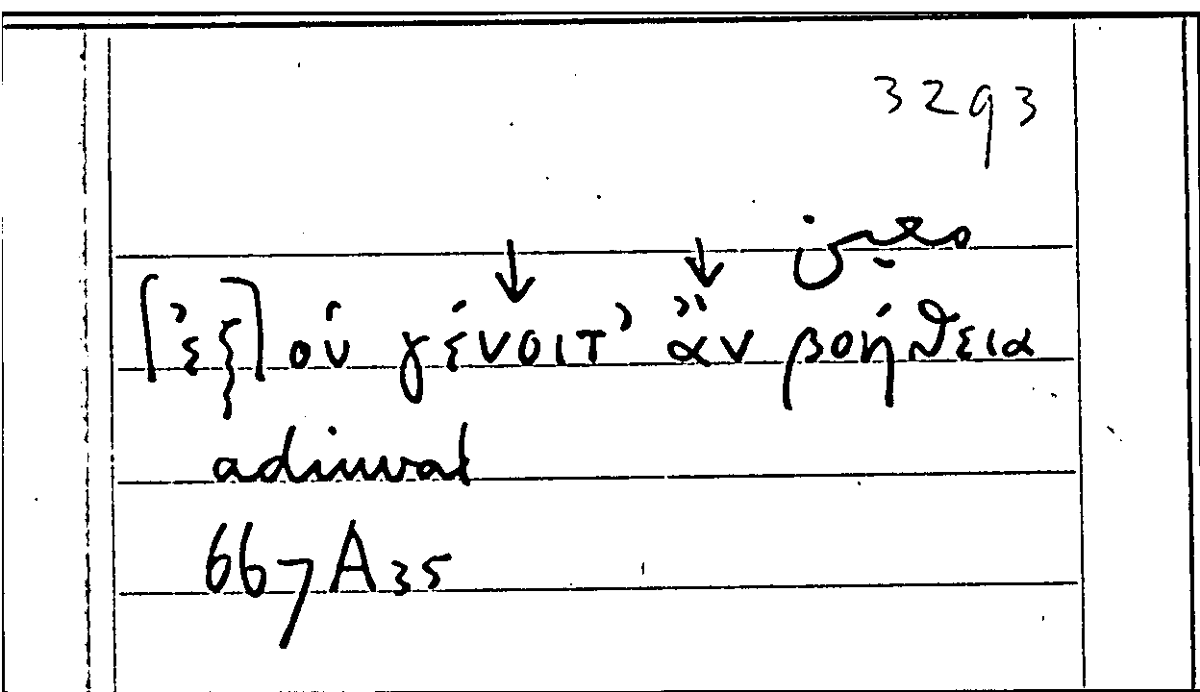 3293
معين
↓ ↓
[ἐξ] οὗ γένοιτ’ ἂν βοήθεια
adiuvat
667A35